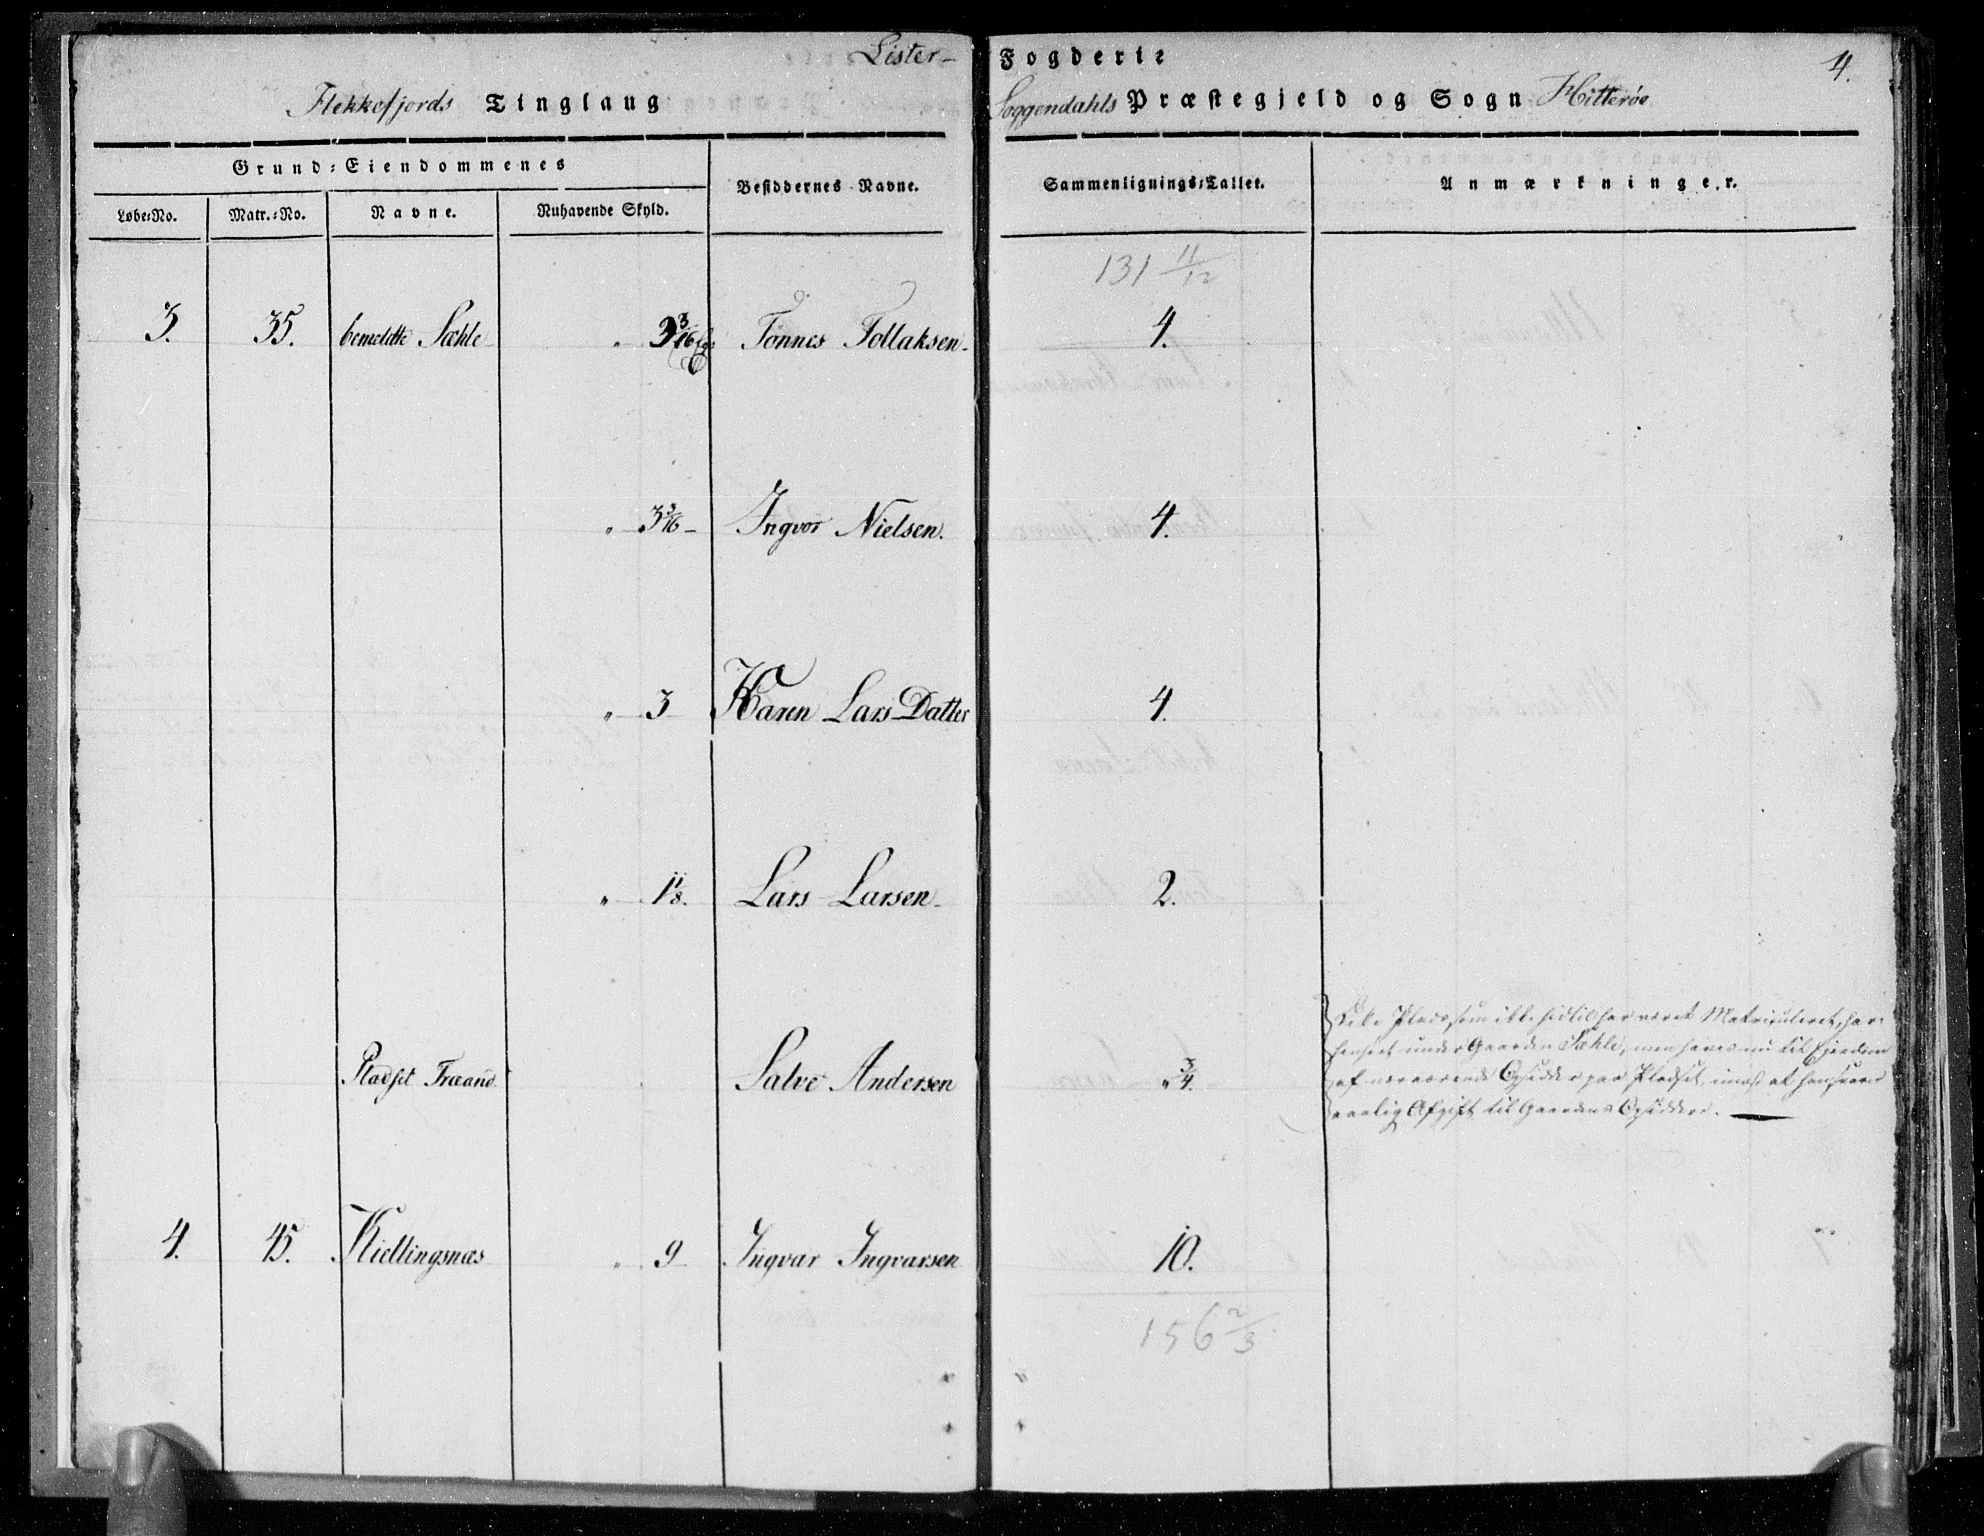 Lister- Fogderie 4.
Flekkefjords Tinglaug Soggendahls Præstegjeld og Sogn Hitterøe
Grund-Eiendommenes
Løbe-No. Matr.-No. Navne. Nuhavende Skyld. Besiddernes Navne. Sammenlignings-Tallet. Anmærkninger.
131 11/12
3. 35. bemeldte Sæhle „ 3 3/16 Tønnes Tollaksen. 4.
„ 3 3/16 Ingvor Nielsen. 4.
„ 3 Karen Lars Datter 4.
„ 1 1/8. Lars Larsen 2.
Pladset Træand Salve Andersen „ 3/4.
Plads som ikke hidtil har været Matriculeret, har
under Gaarden Sæhle, men haves nu til Ejendom
af nærværende Opsidder paa Pladset, imod at han svarer
aarlig Afgift til Gaardens Opsiddere.
4. 45. Kiellingsnæs „ 9 Ingvar Ingvarsen 10.
156 2/3